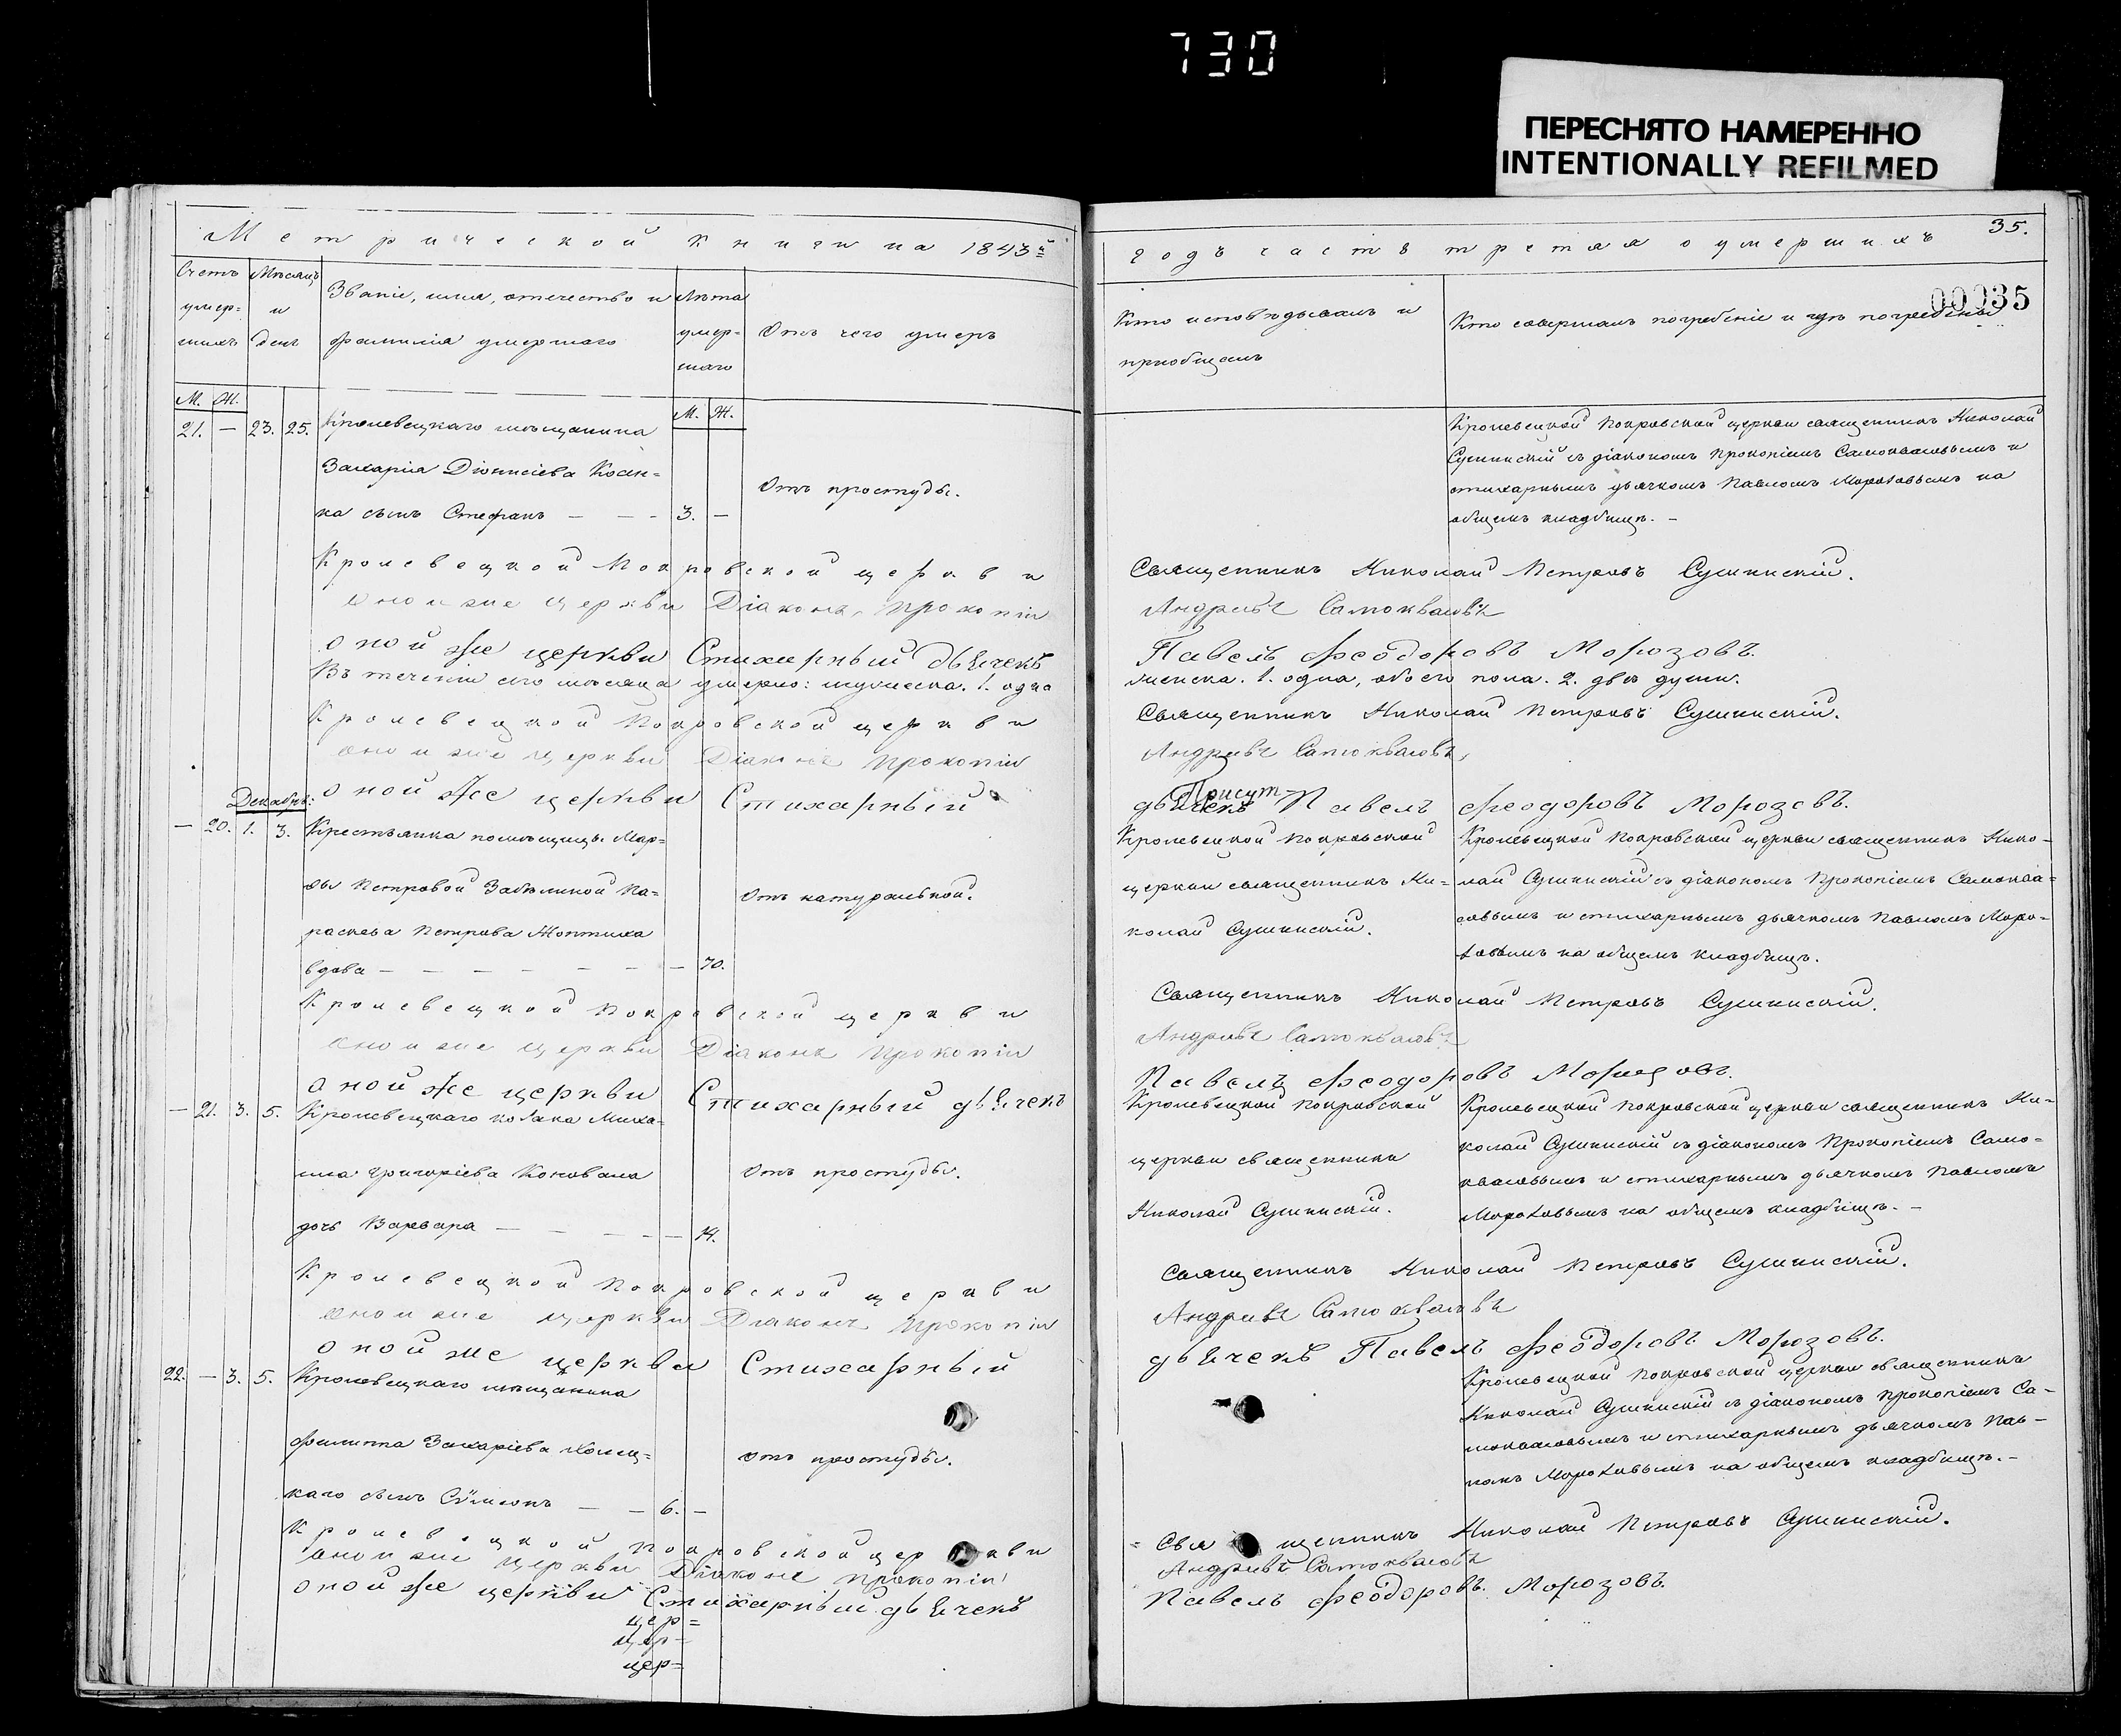 730
ПЕРЕСНЯТО НАМЕРЕННО
INTENTIONALLY REFILMED
Метрической книги на 1843й
Счетъ умер=шихъ
Мѣсяцъ и день
Званіе, имя, отечество и фамилія умершаго
Лѣта умер=шаго
Отъ чего умеръ
М. Ж.
М. Ж.
21. — 23. 25. Кролевецкаго мѣщанина
Захарія Діонисіева Косен=
ка сынъ Стефанъ — — — 3. —
Отъ простуды.
Кролевецкой Покровской церкви
оной же церкви Діаконъ Прокопій
оной же церкви Стихарный дьячекъ
Въ теченіи сего мѣсяца умерло: мужеска. 1. одна
Кролевецкой Покровской церкви
оной же церкви Діаконъ Прокопій
оной же церкви Стихарный
Декабрь:
— 20. 1. 3. Крестьянка помѣщицы Мар=
ѳы Петровой Забѣлиной Па=
раскева Петрова Жоптиха
вдова — — — — — — — 70.
Отъ натуральной.
Кролевецкой Покровской церкви
оной же церкви Діаконъ Прокопій
оной же церкви Стихарный дьячекъ
— 21. 3. 5. Кролевецкаго козака Миха=
ила Григоріева Коновала
дочь Варвара — — — — — 14.
Отъ простуды.
Кролевецкой Покровской церкви
оной же церкви Діаконъ Прокопій
оной же церкви Стихарный
22. — 3. 5. Кролевецкаго мѣщанина
Филиппа Захаріева
каго сынъ Сѵмеонъ — — 6. —
отъ простуды.
Кролевецкой Покровской церкви
оной же церкви Діаконъ Прокопій
оной же церкви Стихарный дьячекъ
цер=
цер=
цер=
35.
годъ часть третая о умершихъ
00035
Кто исповѣдывалъ и пріобщалъ
Кто совершалъ погребеніе и гдѣ погребены
Кролевецкой Покровской церкви священникъ Николай
Сушинскій съ діакономъ Прокопіемъ Самоквасовымъ и
стихарнымъ дьячкомъ Павломъ Морозовымъ на
общемъ кладбищѣ. —
Священникъ Николай Петровъ Сушинскій.
Андріевъ Самоквасовъ
Павелъ Феодоровъ Морозовъ.
женска. 1. одна, обоего пола. 2. двѣ души.
Священникъ Николай Петровъ Сушинскій.
Андріевъ Самоквасовъ
Присут-
дьячекъ Павелъ Феодоровъ Морозовъ.
Кролевецкой Покровской
церкви священникъ Ни=
колай Сушинскій.
Кролевецкой Покровской церкви священникъ Нико-
лай Сушинскій съ діакономъ Прокопіемъ Самоква=
совымъ и стихарнымъ дьячкомъ Павломъ Моро-
зовымъ на общемъ кладбищѣ.
Священникъ Николай Петровъ Сушинскій.
Андріевъ Самоквасовъ
Павелъ Феодоровъ Морозовъ.
Кролевецкой Покровской
церкви священникъ
Николай Сушинскій.
Кролевецкой Покровской церкви священникъ Ни-
колай Сушинскій съ діакономъ Прокопіемъ Само=
квасовымъ и стихарнымъ дьячкомъ Павломъ
Морозовымъ на общемъ кладбищѣ. —
Священникъ Николай Петровъ Сушинскій.
Андріевъ Самоквасовъ
дьячекъ Павелъ Феодоровъ Морозовъ.
Кролевецкой Покровской церкви священникъ
Николай Сушинскій съ діакономъ Прокопіемъ Са-
моквасовымъ и стихарнымъ дьячкомъ Пав-
ломъ Морозовымъ на общемъ кладбищѣ. —
Священникъ Николай Петровъ Сушинскій.
Андріевъ Самоквасовъ
Павелъ Феодоровъ Морозовъ.